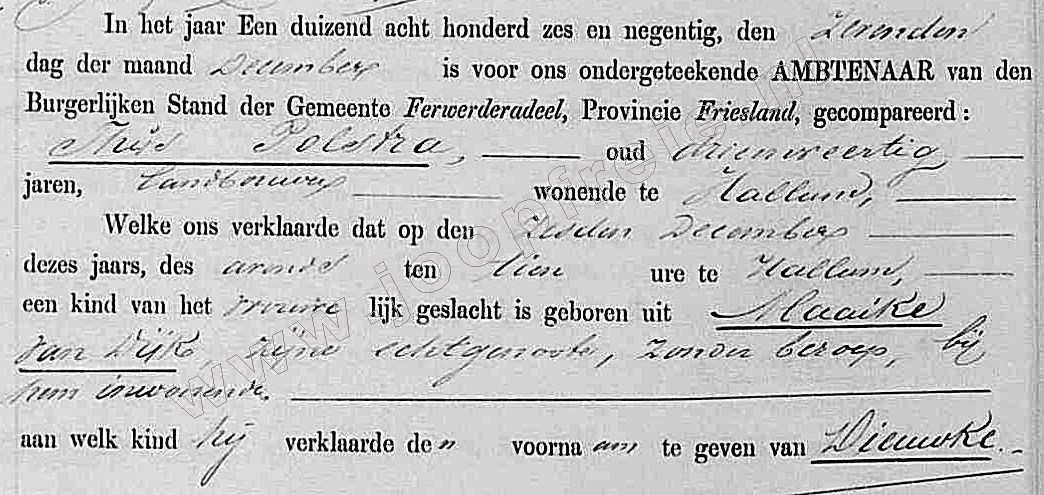 In het jaar Een duizend acht honderd zes en negentig, den Zevenden
dag der maand December is voor ons ondergeteekende AMBTENAAR van den
Burgerlijken Stand der Gemeente Ferwerderadeel, Provincie Friesland, gecompareerd:
Thijs Polstra, oud drienveertig,
jaren, Landbouwer wonende te Hallum,
Welke ons verklaarde dat op den Zesden December
dezes jaars, des avonds ten tien ure te Hallum,
een kind van het vrouwe lijk geslacht is geboren uit Maaike
van Dijk, zijne echtgenoote, zonder beroep, bij
hem inwonende.
aan welk kind hij verklaarde den voornaam te geven van Dieuwke.